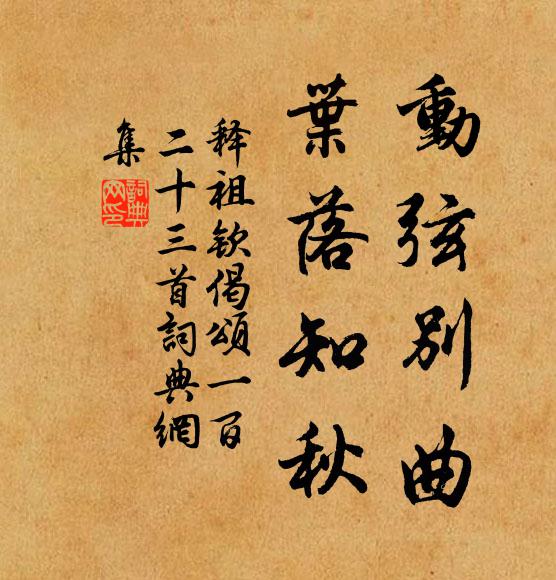 動弦別曲
葉落知秋
释祖钦偈頌一百
二十三首詞典網
集
詞典
网印